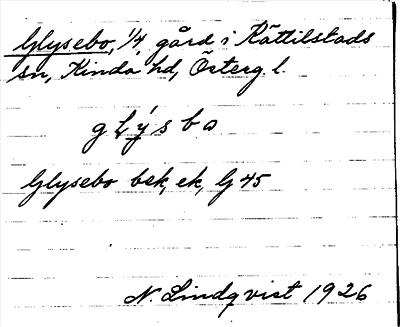 Glysebo, 1/4, gård i Kättilstads
sn, Kinda hd, Österg. l.
g l ý s b o
Glysebo bek, ek, G 45
N. Lindqvist 1926